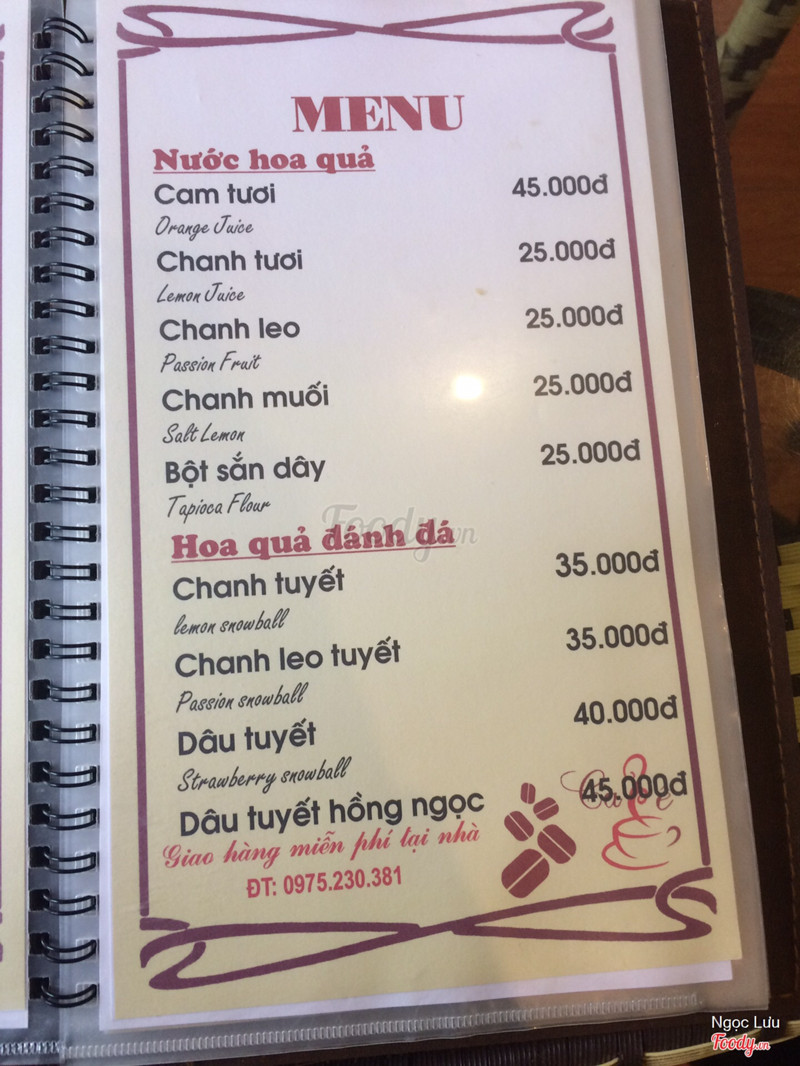 MENU
Nước hoa quả
Cam tươi 45.000đ
Orange Juice
Chanh tươi 25.000đ
Lemon Juice
Chanh leo 25.000đ
Passion Fruit
Chanh muối 25.000đ
Salt Lemon
Bột sắn dây 25.000đ
Tapioca Flour
Foody.vn
Hoa quả đánh đá
Chanh tuyết 35.000đ
lemon snowball
Chanh leo tuyết 35.000đ
Passion snowball
Dâu tuyết 40.000đ
Strawberry snowball
Dâu tuyết hồng ngọc 45.000đ
Giao hàng miễn phí tại nhà
ĐT: 0975.230.381
Ngọc Lưu
Foody.vn